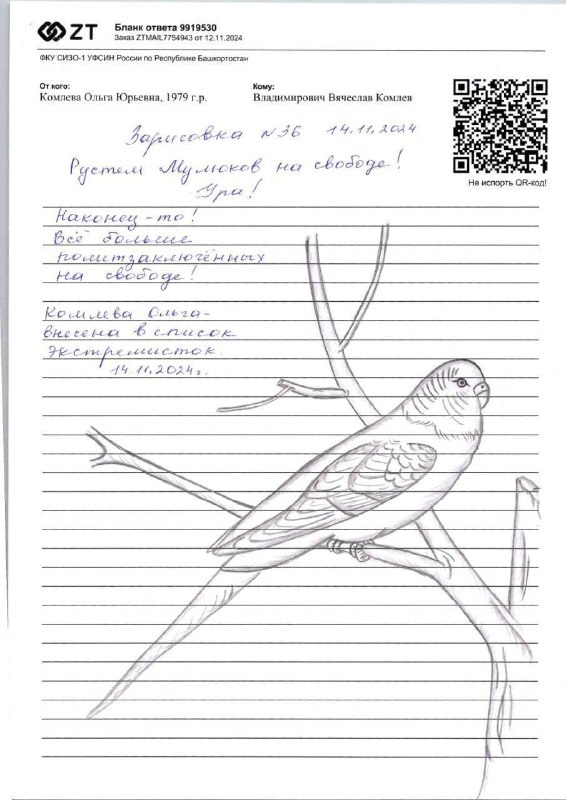 ZT
Бланк ответа 9919530
Заказ ZTMAIL7754943 от 12.11.2024
ФКУ СИЗО-1 УФСИН России по Республике Башкортостан
От кого:
Комлева Ольга Юрьевна, 1979 г.р.
Кому:
Владимирович Вячеслав Комлев
Не испорть QR-код!
Зарисовка №36 14.11.2024
Рустем Мулюков на свободе!
Ура!
Наконец-то!
Всё больше
политзаключённых
на свободе!
Комлева Ольга-
внесена в список
экстремисток.
14.11.2024г.